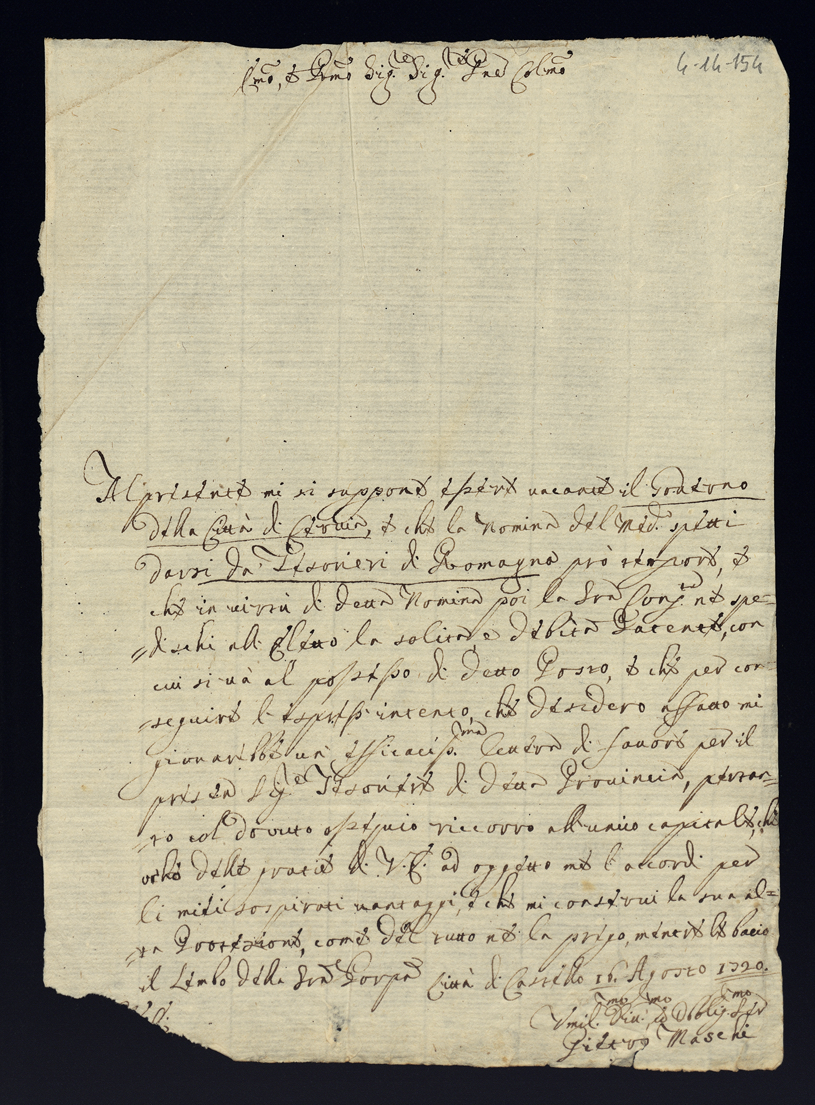 4-14-154
Emo, e Rmo Sig.re Sig.re Pne Colmo
Al presente mi si suppone essere vacante il Governo
della Città di Cervia, e che la Nomina del Med.o spetti
darsi da Tesorieri di Romagna prò tempore, e
che in virtù di detta Nomina poi la Sra Cong.ne ne spe=
=dischi all'Eletto la solita e debita Patente, con
cui si và al possesso di detto Posto, e che per con=
=seguire l'espresso intento, che desidero assai mi
giovarebbe un'efficaciss.ma lettera di favore per il
presen Sig.re Tesoriere di detta Provincia, pertan=
=to col dovuto ossequio ricorro all'unico capitale, che
delle gratie di V.E. ad oggetto me l'accordi per
li miei sospirati vantaggi, e che mi constitui la sua al=
=ta Protezzione, come del tutto ne la priego, mentre le bacio
il Lembo della Sra Porpa Città di Castello 16. Agosto 1720.
Vmil.mo Div.mo et Oblig.mo Ser
Pietro Maschi